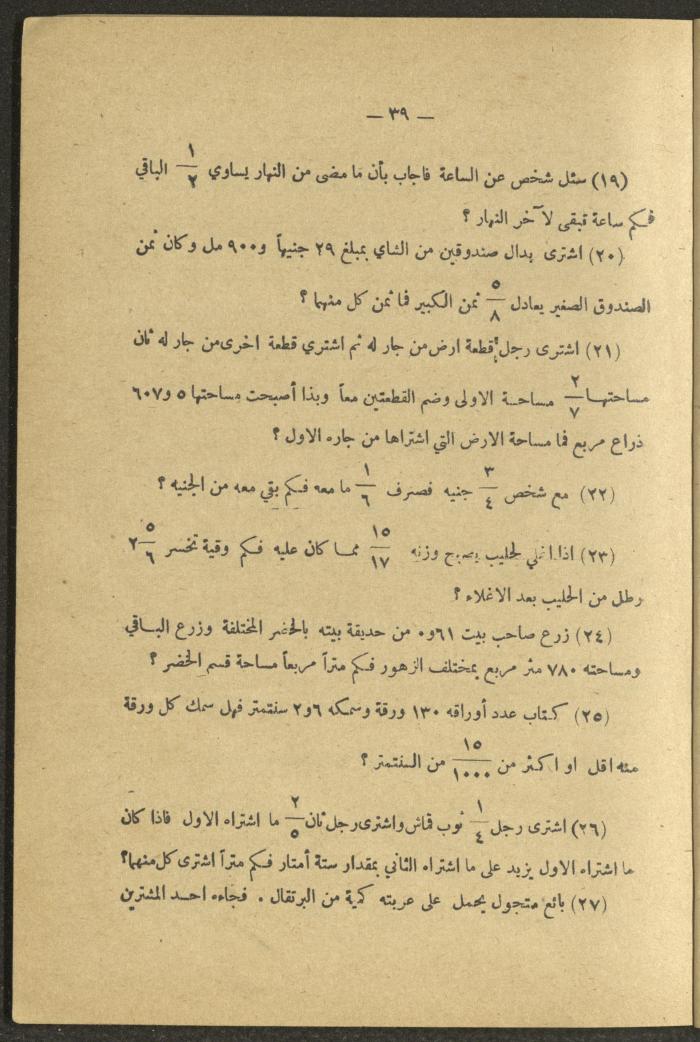 — ٣٩ —
(١٩) سئل شخص عن الساعة فاجاب بأن ما مضى من النهار يساوي ١/٢ الباقي
فكم ساعة تبقى لآخر النهار ؟
(٢٠) اشترى بدال صندوقين من الشاي بمبلغ ٢٩ جنيهاً و٩٠٠ مل وكان ثمن
الصندوق الصغير يعادل ٥/٨ ثمن الكبير فما ثمن كل منهما ؟
(٢١) اشترى رجل قطعة ارض من جار له ثم اشتري قطعة اخرى من جار له ثان
مساحتها ٢/٧ مساحة الاولى وضم القطعتين معاً وبذا أصبحت مساحتها ٥ و٦٠٧
ذراع مربع فما مساحة الارض التي اشتراها من جاره الاول ؟
(٢٢) مع شخص ٣/٤ جنيه فصرف ١/٦ ما معه فكم بقي معه من الجنيه ؟
(٢٣) اذا اغلي لحليب يصبح وزنه ١٥/١٧ مما كان عليه فكم وقية تخسر ٢ ٥/٦
رطل من الحليب بعد الاغلاء ؟
(٢٤) زرع صاحب بيت ٦١و٠ من حديقة بيته بالخضر المختلفة وزرع الباقي
ومساحته ٧٨٠ متر مربع بمختلف الزهور فكم متراً مربعاً مساحة قسم الخضر ؟
(٢٥) كتاب عدد أوراقه ١٣٠ ورقة وسمكه ٦و٢ سنتمتر فهل سمك كل ورقة
منه اقل او اكثر من ١٥/١٠٠٠ من السنتمتر ؟
(٢٦) اشترى رجل ١/٤ ثوب قماش واشترى رجل ثان ٢/٥ ما اشتراه الاول فاذا كان
ما اشتراه الاول يزيد على ما اشتراه الثاني بمقدار ستة أمتار فكم متراً اشترى كل منهما؟
(٢٧) بائع متجول يحمل على عربته كمية من البرتقال . فجاءه احد المشترين